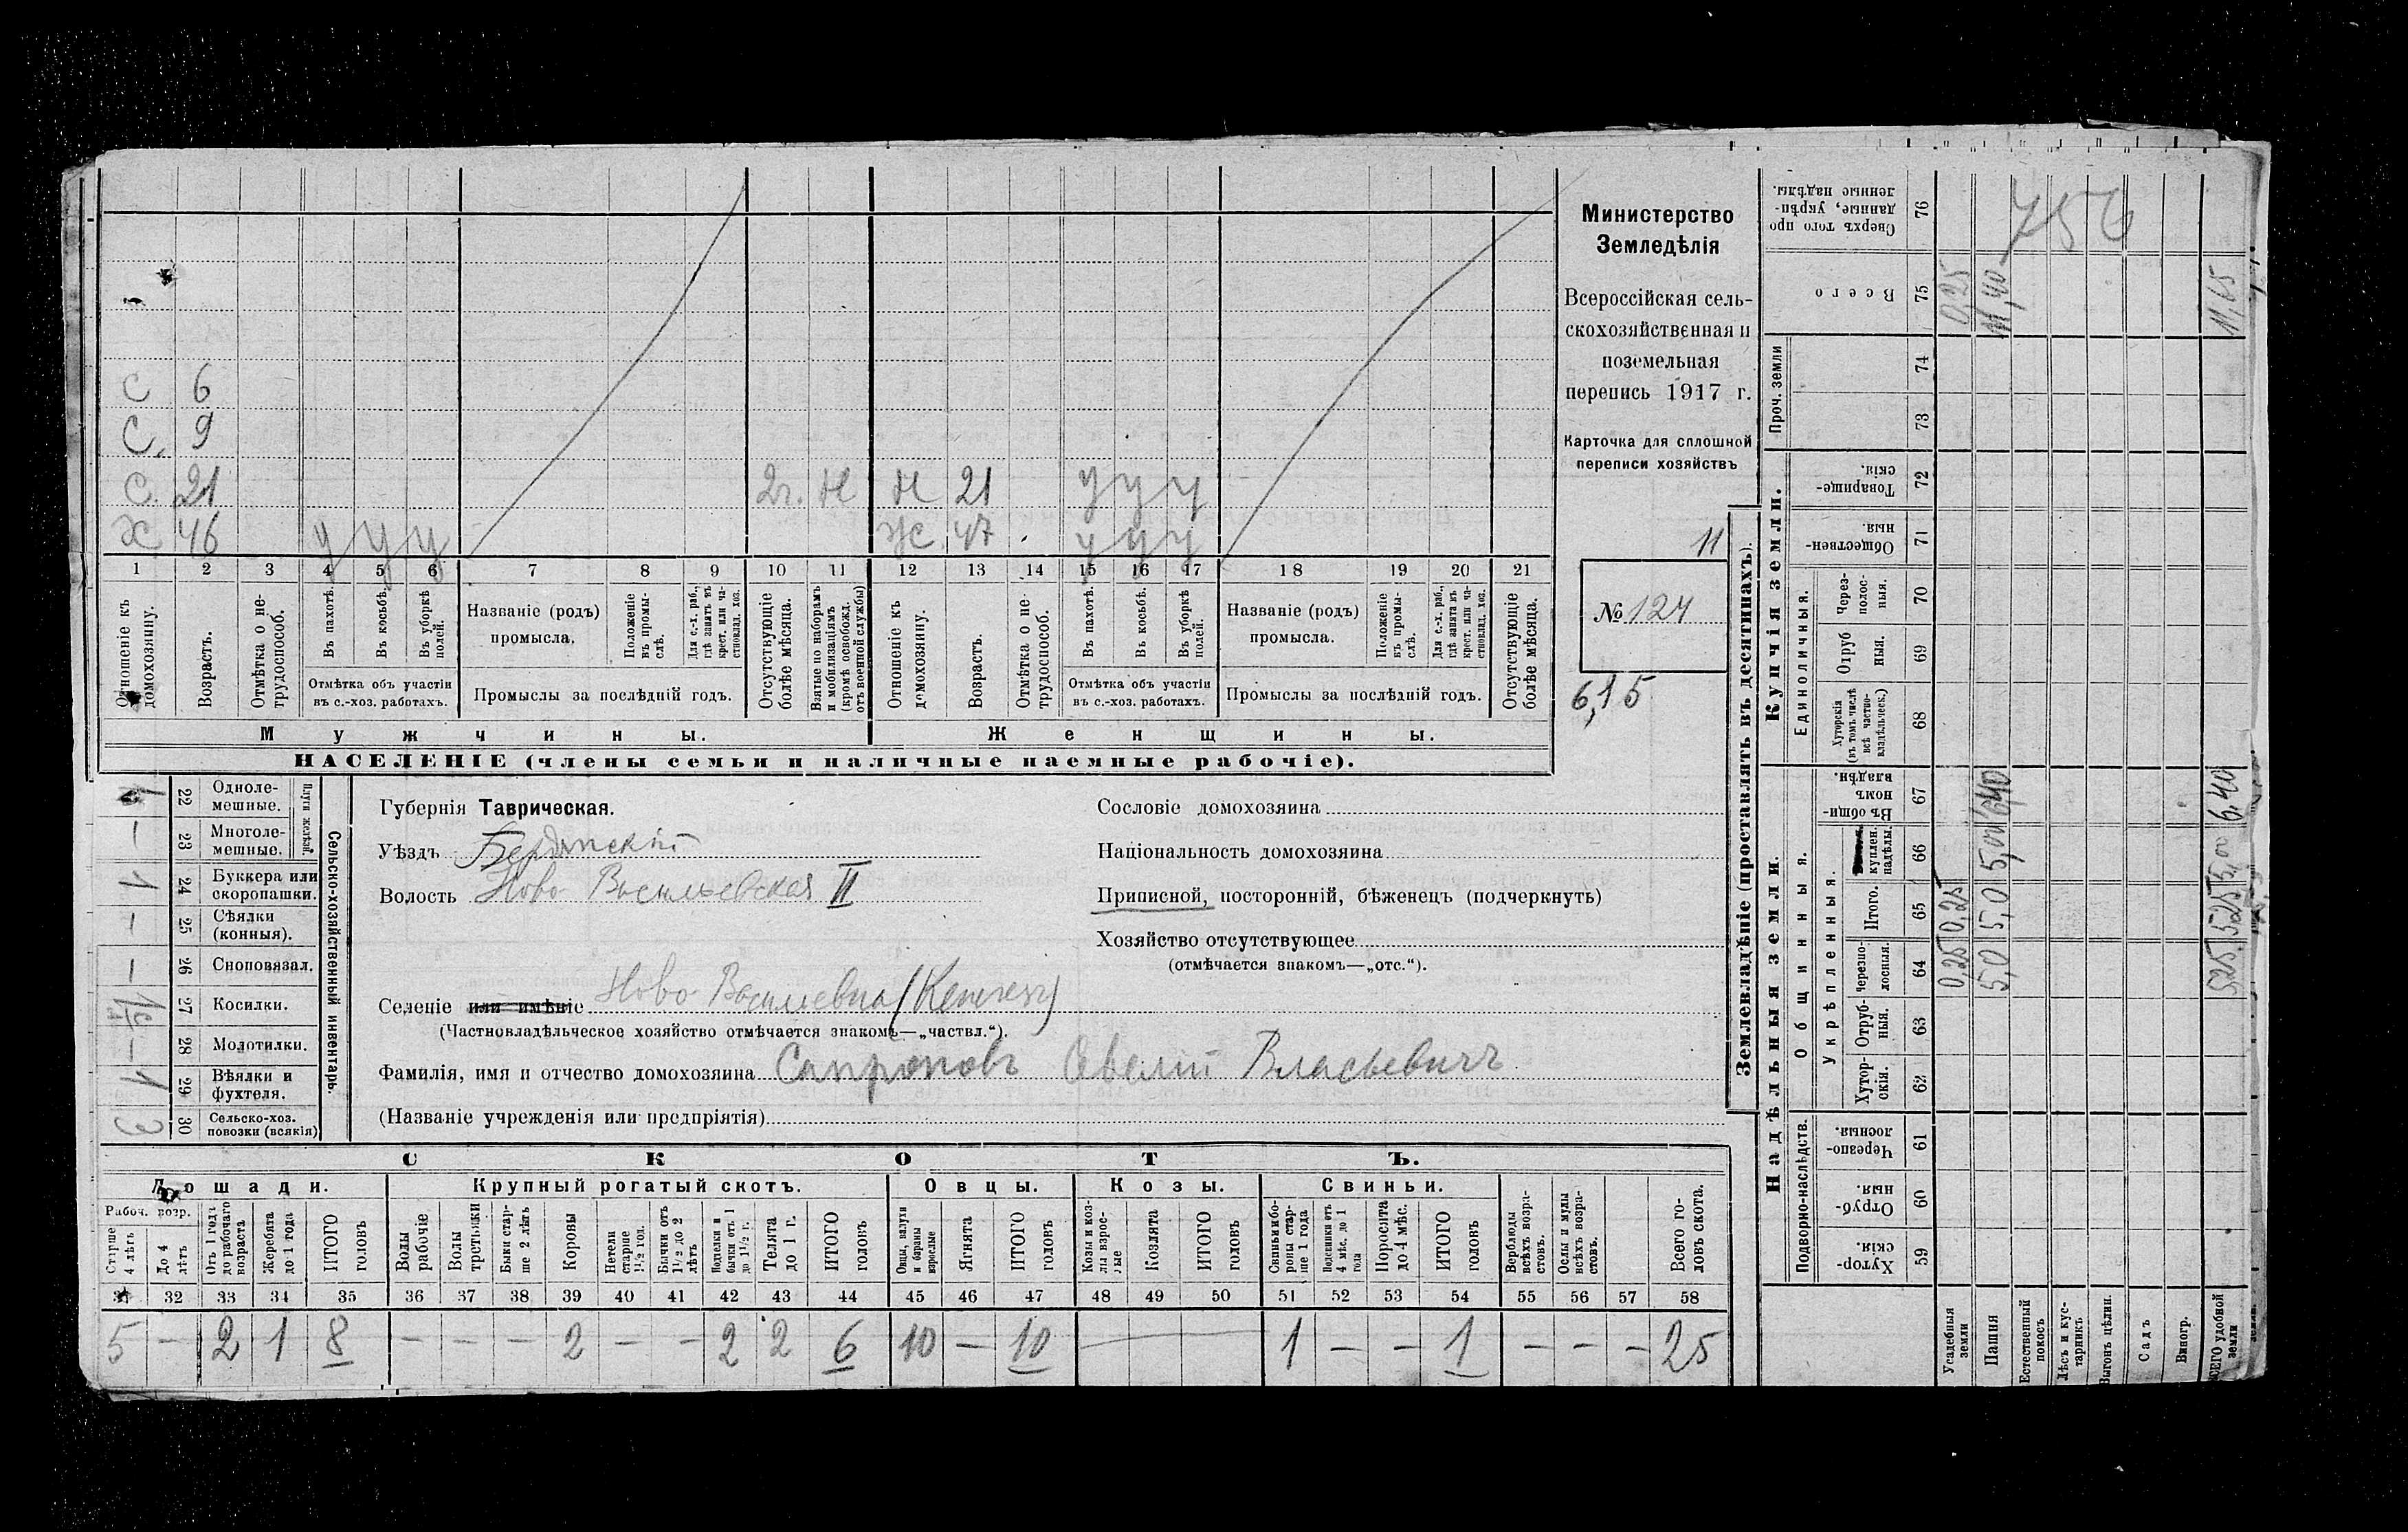 С 6
С. 9
С. 21 2г. Н Н 21 у у у
Х 46 у у у Ж 47 у у у
1 2 3 4 5 6 7 8 9 10 11 12 13 14 15 16 17 18 19 20 21
Отношеніе къ домохозяину.
Возрастъ.
Отмѣтка о не-трудоспособ.
Въ пахотѣ.
Въ косьбѣ.
Въ уборкѣ полей.
Отмѣтка объ участіи
въ с.-хоз. работахъ.
Названіе (родъ)
промысла.
Положеніе въ промы-слѣ.
Для с.-х. раб., гдѣ занятъ въ крест. или ча-стновлад. хоз.
Промыслы за послѣдній годъ.
Отсутствующіе болѣе мѣсяца.
Взятые по наборамъ и мобилизаціямъ (кромѣ освобожд. отъ военной службы)
Отношеніе къ домохозяину.
Возрастъ.
Отмѣтка о не-трудоспособ.
Въ пахотѣ.
Въ косьбѣ.
Въ уборкѣ полей.
Отмѣтка объ участіи
въ с.-хоз. работахъ.
Названіе (родъ)
промысла.
Положеніе въ промы-слѣ.
Для с.-х. раб., гдѣ занята въ крест. или ча-стновлад. хоз.
Промыслы за послѣдній годъ.
Отсутствующіе болѣе мѣсяца.
Мужчины. Женщины.
НАСЕЛЕНІЕ (члены семьи и наличные наемные рабочіе).
Министерство
Земледѣлія
Всероссійская сель-
скохозяйственная и
поземельная
перепись 1917 г.
Карточка для сплошной
переписи хозяйствъ
11
№ 124
6,15
Сельско-хозяйственный инвентарь.
Плуги желѣзн.
22 Одноле-мешные.
— 23 Многоле-мешные.
1 24 Буккера или скоропашки.
— 25 Сѣялки (конныя).
— 26 Сноповязал.
27 Косилки.
— 28 Молотилки.
1 29 Вѣялки и фухтеля.
3 30 Сельско-хоз. повозки (всякія)
Губернія Таврическая.
Уѣздъ Бердянскій
Волость Ново Васильевская II
Селеніе или имѣніе Ново Василевка
(Частновладѣльческое хозяйство отмѣчается знакомъ—„частвл.“).
Фамилія, имя и отчество домохозяина Сапроновъ Савелій Власьевичъ
(Названіе учрежденія или предпріятія)
Сословіе домохозяина
Національность домохозяина
Приписной, посторонній, бѣженецъ (подчеркнуть)
Хозяйство отсутствующее
(отмѣчается знакомъ—„отс.“).
СКОТЪ.
Лошади. Крупный рогатый скотъ. Овцы. Козы. Свиньи.
Рабоч. возр.
Старше 4 лѣтъ
До 4 лѣтъ
Отъ 1 года до рабочаго возраста
Жеребята до 1 года
ИТОГО головъ
Волы рабочіе
Волы третьяки
Быки стар-ше 2 лѣтъ
Коровы
Нетели старше 1½ год.
Бычки отъ 1½ до 2 лѣтъ
Подтелки и бычки отъ 1 до 1½ г.
Телята до 1 г.
ИТОГО головъ
Овцы, валухи и бараны взрослые
Ягнята
ИТОГО головъ
Козы и коз-лы взрос-лые
Козлята
ИТОГО головъ
Свиньи и бо-роны стар-ше 1 года
Подсвинки отъ 4 мѣс. до 1 года
Поросята до 4 мѣс.
ИТОГО головъ
Верблюды всѣхъ возра-стовъ.
Ослы и мулы всѣхъ возра-стовъ.
Всего го-ловъ скота.
31 32 33 34 35 36 37 38 39 40 41 42 43 44 45 46 47 48 49 50 51 52 53 54 55 56 57 58
5 — 2 1 8 — — — 2 — — 2 2 6 10 — 10 — 1 — — 1 — — — 25
Землевладѣніе (проставлять въ десятинахъ).
Надѣльныя земли. Купчія земли.
Подворно-наслѣдств.
Общинныя.
Укрѣпленныя.
Единоличныя.
Проч. земли
Сверхъ того про данные, укрѣп-ленные надѣлы. 76
Всего 75
74
73
Товарище-скія. 72
Обществен-ныя. 71
Через-полос-ныя. 70
Отруб ныя. 69
Хуторскія (въ томъ числѣ всѣ частно-владѣльческ.) 68
Въ общи-номъ владѣн. 67
куплен. надѣлы. 66
Итого. 65
Черезпо-лосныя. 64
Отруб-ныя. 63
Хутор-скія. 62
Черезпо-лосныя. 61
Отруб-ныя. 60
Хутор-скія. 59
Усадебныя земли 0,25 0,25 0,25
Пашня 5,0 5,0 5,00 6,40 11,40
Естественный покосъ
Лѣсъ и кус-тарникъ
Выгонъ цѣлин.
Садъ
Виногр.
ВСЕГО удобной земли 5,25 5,25 5,00 6,40 11,65
756